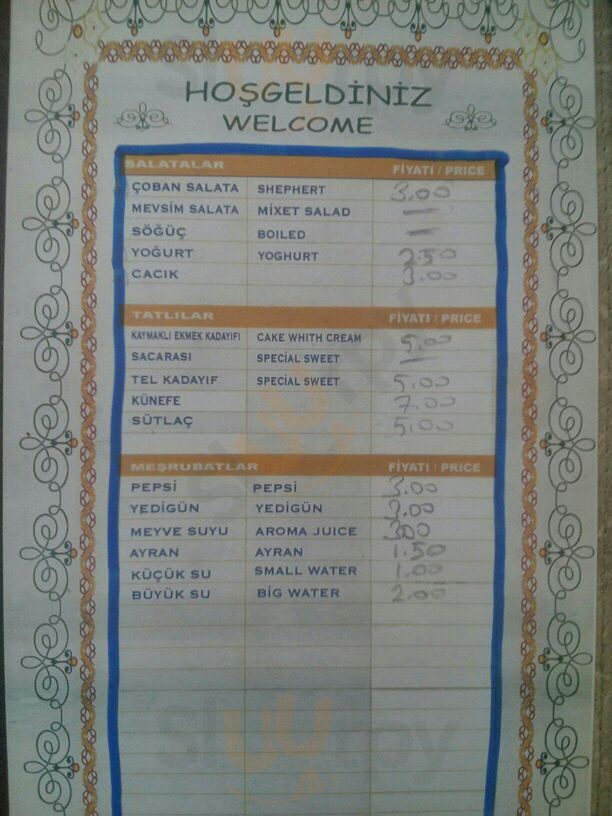 HOŞGELDİNİZ
WELCOME
SALATALAR FİYATI / PRICE
ÇOBAN SALATA SHEPHERT 3.00
MEVSİM SALATA MİXET SALAD —
SÖĞÜÇ BOILED —
YOĞURT YOGHURT 2.50
CACIK 3.00
TATLILAR FİYATI / PRICE
KAYMAKLI EKMEK KADAYIFI CAKE WHITH CREAM 5.00
SACARASI SPECİAL SWEET —
TEL KADAYIF SPECİAL SWEET 5.00
KÜNEFE 7.00
SÜTLAÇ 5.00
MEŞRUBATLAR FİYATI / PRICE
PEPSİ PEPSİ 3.00
YEDİGÜN YEDİGÜN 3.00
MEYVE SUYU AROMA JUICE 3.00
AYRAN AYRAN 1.50
KÜÇÜK SU SMALL WATER 1.00
BÜYÜK SU BİG WATER 2.00
Sluurpy